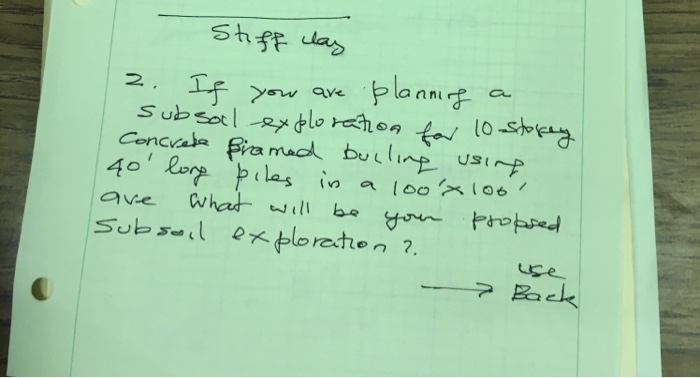 Stiff clay
2. If you are planning a
subsoil exploration for 10-storey
Concrete framed builing using
40' long piles in a 100'x100'
are what will be your propsed
Subsoil exploration?.
use
→ Back